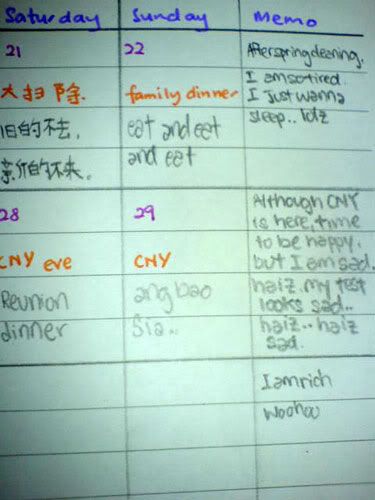 Saturday
Sunday
Memo
21
大扫除.
旧的不去,
新的不来。
22
family dinner
eat and eat
and eat
After spring cleaning,
I am so tired.
I Just wanna
sleep.. lolz
28
CNY eve
Reunion
dinner
29
CNY
ang bao
Sia..
Although CNY
is here, time
to be happy,
but I am sad.
haiz. my test
looks sad..
haiz.. haiz
sad.
I am rich
woohoo